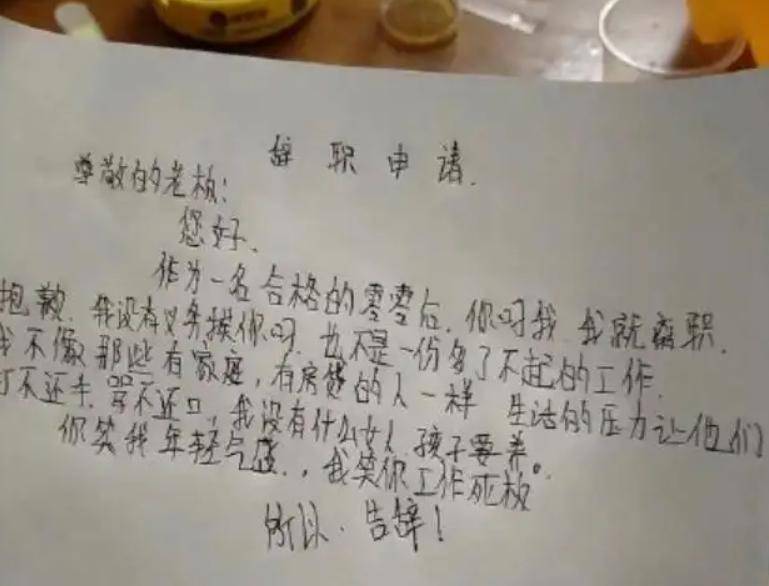 辞职申请.
尊敬的老板:
您好.
作为一名合格的零零后.你吼我.我就离职.
抱歉.我没有义务挨你吼.也不是一份多了不起的工作.
我不像那些有家庭,有房贷的人一样 生活的压力让他们
打不还手.骂不还口,我没有什么女人.孩子要养。
你笑我年轻气盛.,我笑你工作死板
所以.告辞!